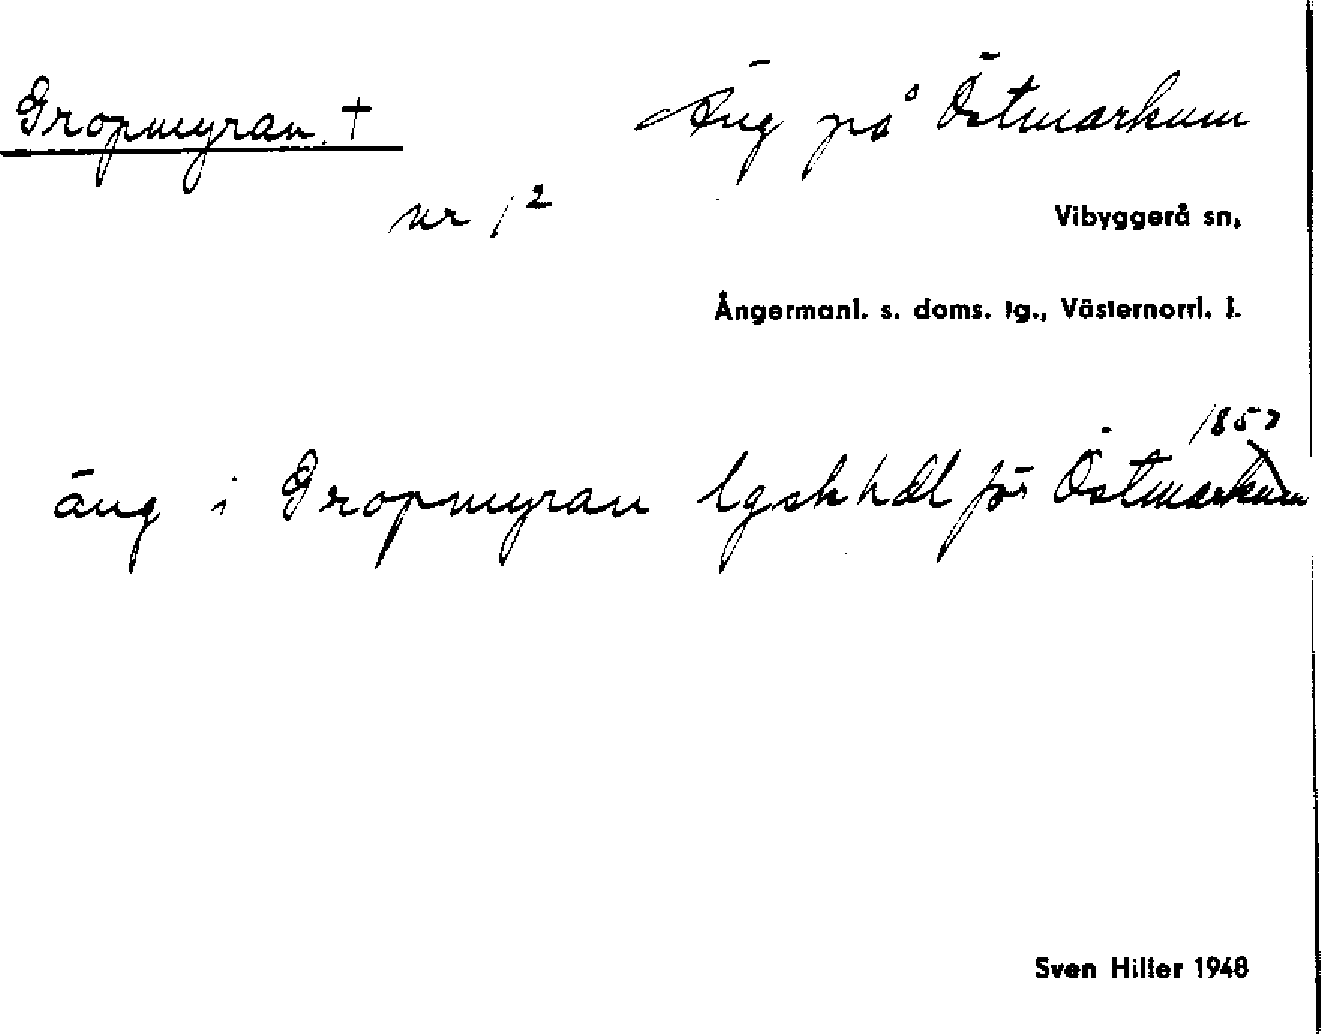 Gropmyran † Äng på Östmarkum
nr 1²
Vibyggerå sn,
Ångermanl. s. doms. tg., Västernorrl. l.
äng i Gropmyran lgsk hdl för Östmarkum
Sven Hiller 1948